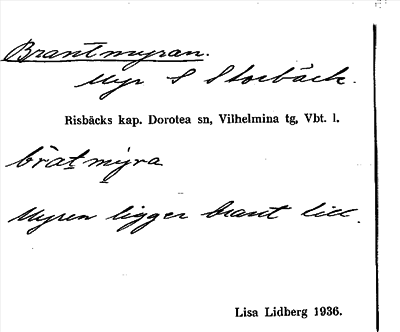 Brantmyran.
Myr S Storbäck.
Risbäcks kap. Dorotea sn, Vilhelmina tg, Vbt. l.
bràt myra
Myren ligger brant till.
Lisa Lidberg 1936.